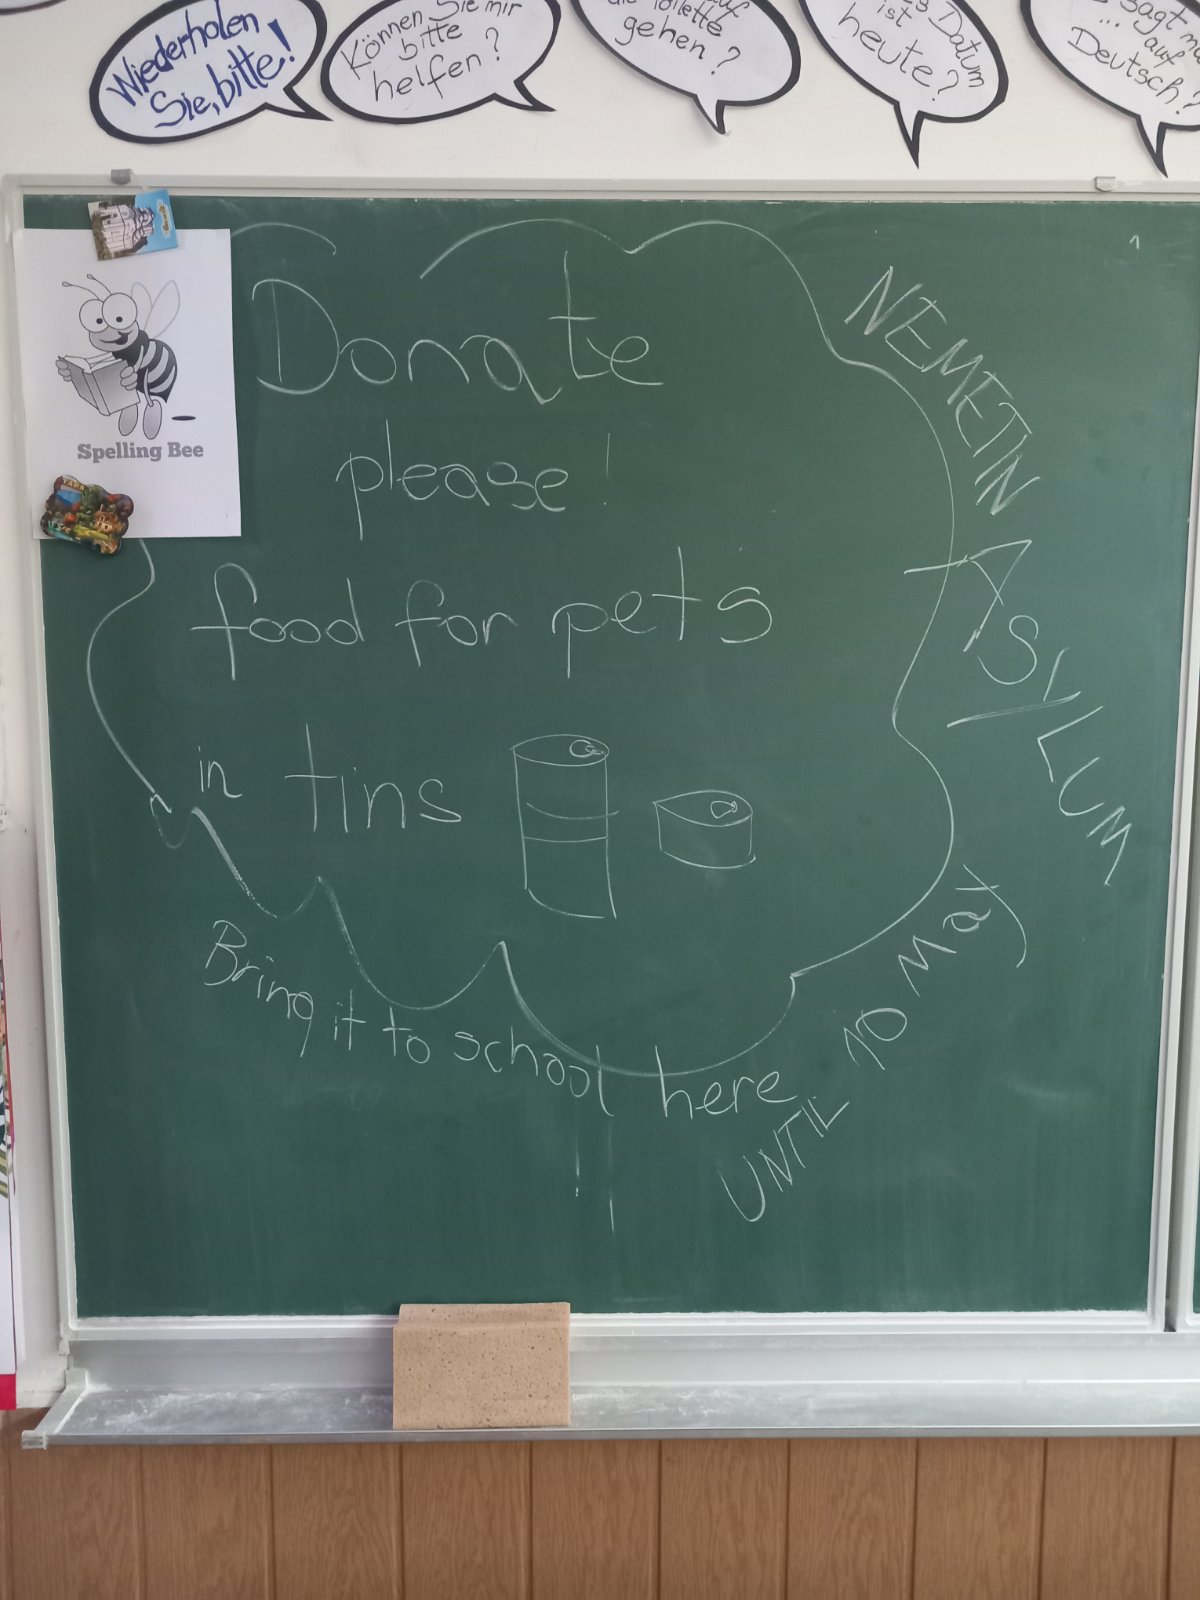 Wiederholen
Sie, bitte!
Können Sie mir
bitte
helfen?
auf
die Toilette
gehen?
Datum
ist
heute?
sagt
... auf
Deutsch?
Spelling Bee
Donate
please!
food for pets
in tins
NEMETIN ASYLUM
Bring it to school here
!
UNTIL 10 May